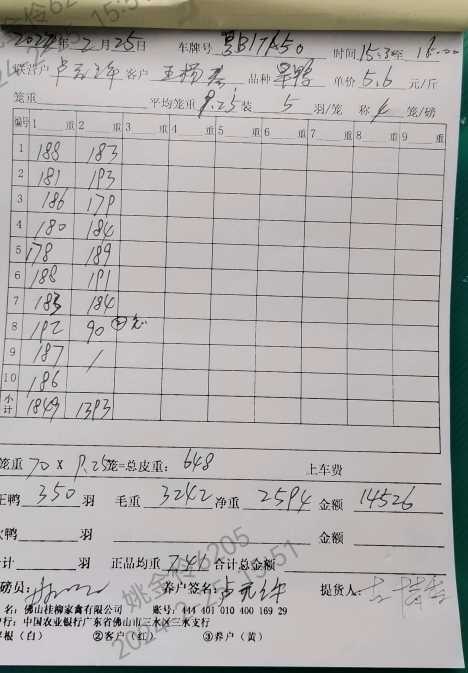 2024年2月25日 车牌号 粤B17A50 时间15:30至18:00
联养户 客户 品种 单价5.6元/斤
笼重 平均笼重9.25装5羽/笼 称4笼/磅
编号 1 重 2 重 3 重 4 重 5 重 6 重 7 重 8 重 9 重
1 188 183
2 181 193
3 186 179
4 180 184
5 178 189
6 188 191
7 183 184
8 192 90
9 187 /
10 186
小计 1849 1393
笼重70×9.25笼=总皮重:648 上车费
正鸭350羽 毛重3242净重2594金额14526
次鸭 羽 金额
计 羽 正品均重7.41合计总金额
磅员: 养户签名: 提货人:
名:佛山桂柳家禽有限公司 账号:444 401 010 400 169 29
行:中国农业银行广东省佛山市三水区三水支行
根(白) ②客户(红) ③养户(黄)
姚金伶6205